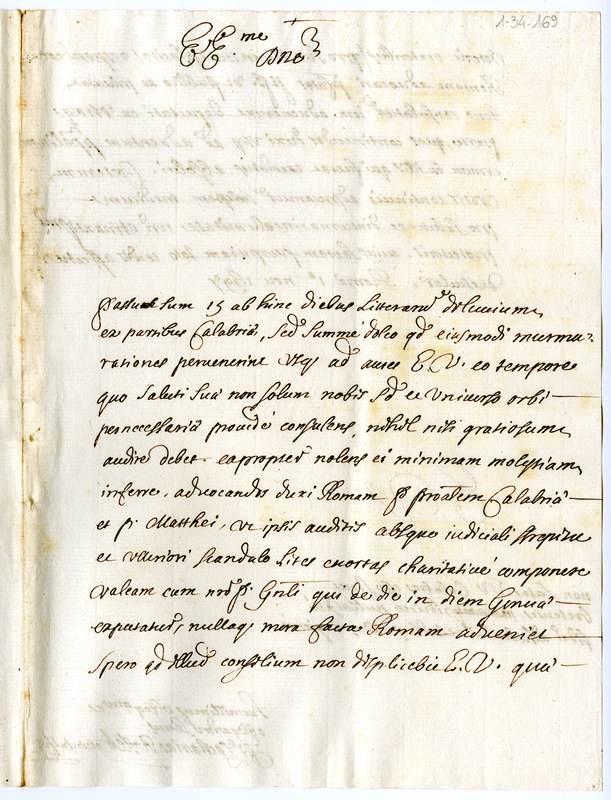 1-34-169
EE.me Dne
Passus sum 15 ab hinc diebus litterarũ diluvium
ex partibus Calabriæ, sed summé doleo qd eiusmodi murmu-
rationes pervenerint usq; ad aures E. V. eo tempore
quo saluti suæ non solum nobis sed et universo orbi
pernecessariæ providé consulens, nihil nisi gratiosum
audire debet. eapropter nolens ei minimam molestiam
inferre, advocandos duxi Romam P. Proãlem Calabriæ
et p. Matthei, ut ipsis auditis absque iudiciali strepitu
et ulteriori scandalo lites exortas charitativé componere
valeam cum nrõ P. Gnli qui de die in diem Genuâ
expectatur, nullaq; mora facta Romam adveniet
spero qd illud consilium non displicebit E. V. quâ